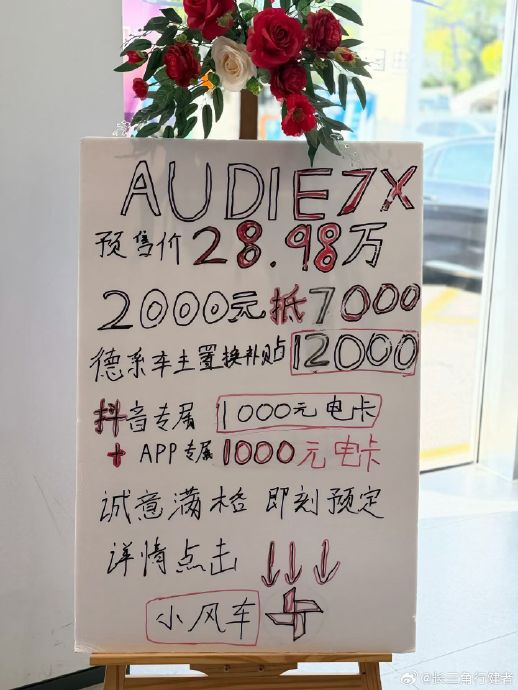 AUDI E7X
预售价 28.98万
2000元抵7000
德系车主置换补贴 12000
抖音专属 1000元电卡
+ APP专属 1000元电卡
诚意满格 即刻预定
详情点击 ↓↓↓
小风车
@长三角行健者